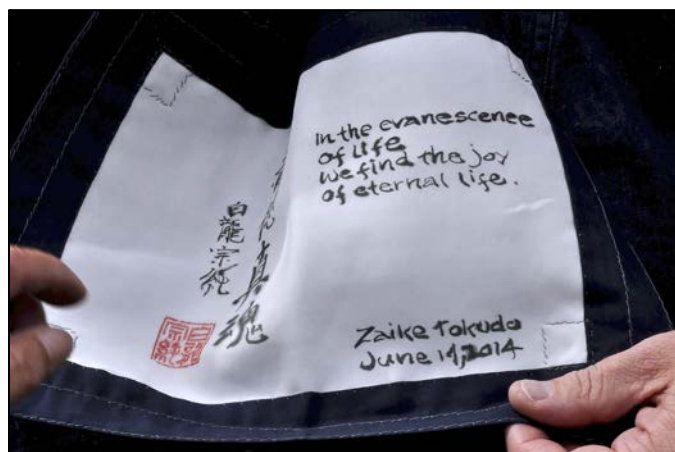 In the evanescence
of life
we find the joy
of eternal life.
Zaike Tokudo
June 14,2014
真魂
白龍宗純
白龍
宗純